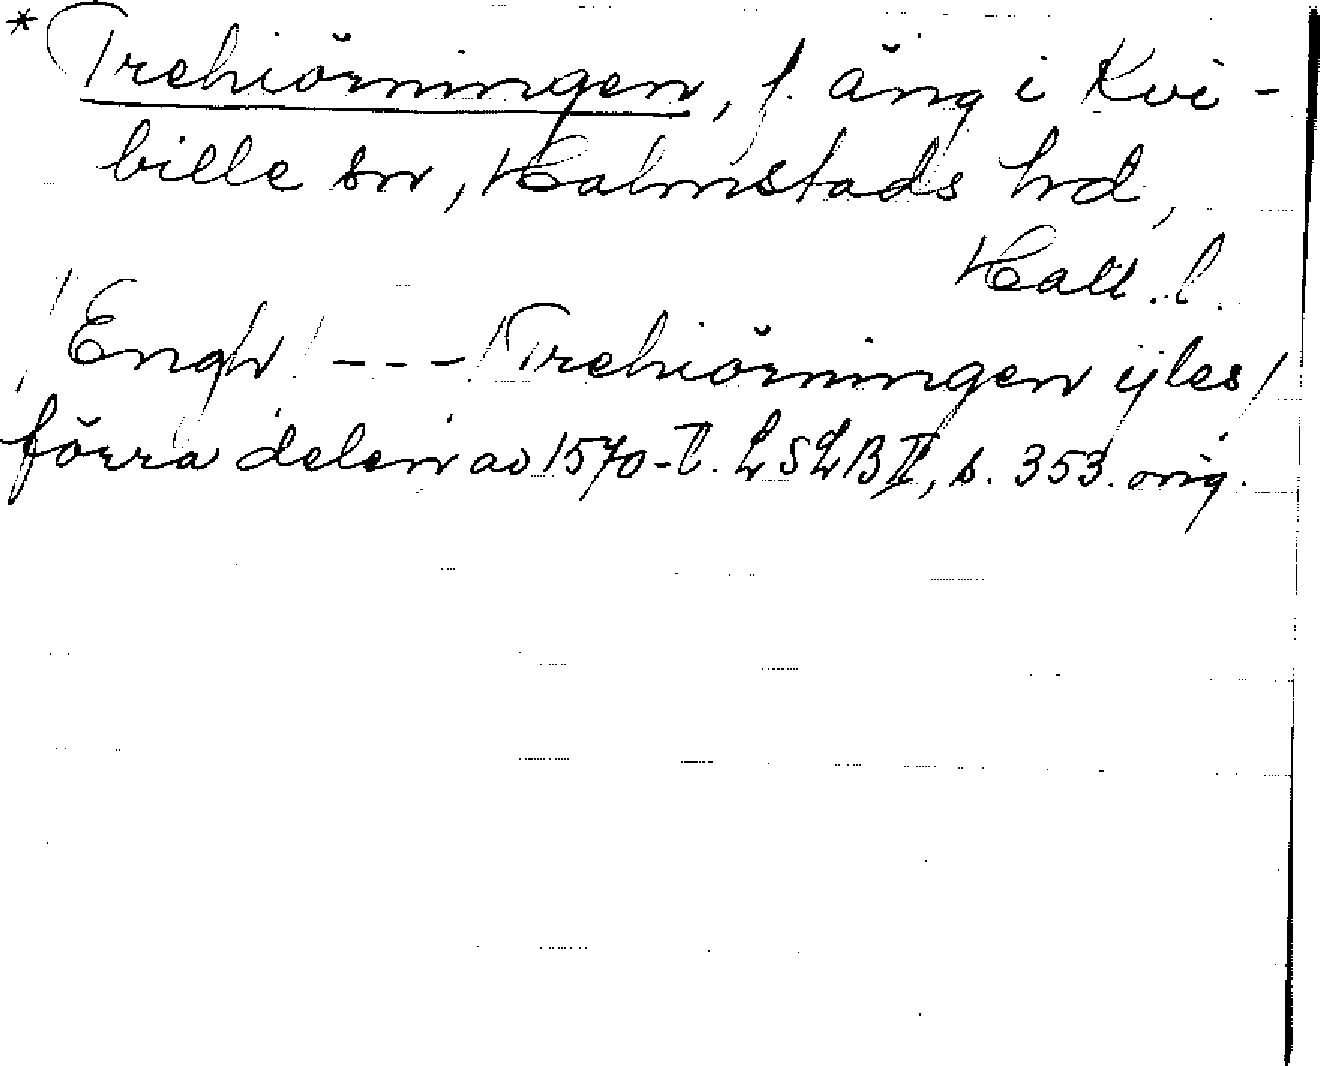 * Trehiörningen, f. äng i Kvi-
bille sn, Halmstads hd,
Hall. l.
/Engh/ --- /Trehiörningen
förra delen av 1570-t. LSLB II, s. 353. orig.